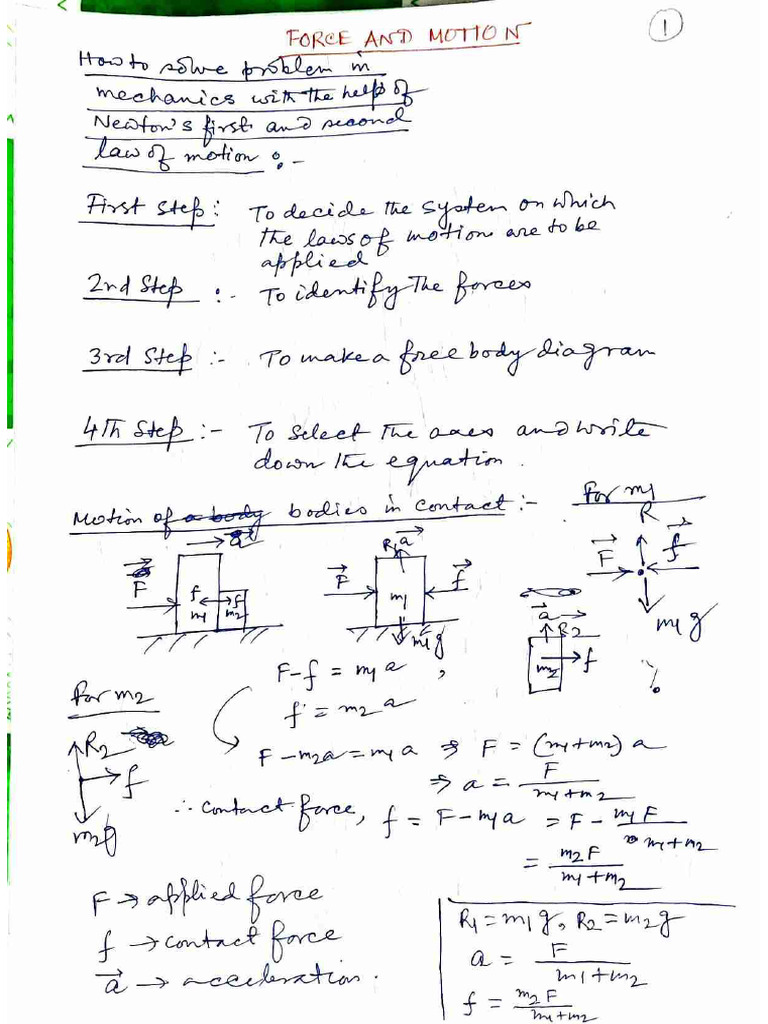 FORCE AND MOTION
1
How to solve problem in
mechanics with the help of
Newton's first and second
law of motion :-
First step : To decide the system on which
the laws of motion are to be
applied
2nd Step :- To identify the forces
3rd Step :- To make a free body diagram
4th Step :- To select the axes and write
down the equation.
Motion of a body bodies in contact :-
For m1
R
F f
m1g
a
F
f f
m1 m2
R1 a
F f
m1
m1g
a
R2
m2 f
F-f = m1a ,
f = m2a
For m2
R2
f
m2g
F-m2a = m1a ⇒ F = (m1+m2) a
⇒ a = F/(m1+m2)
∴ contact force, f = F-m1a = F - m1F/(m1+m2)
= m2F/(m1+m2)
F → applied force
f → contact force
a → acceleration.
R1 = m1g, R2 = m2g
a = F/(m1+m2)
f = m2F/(m1+m2)